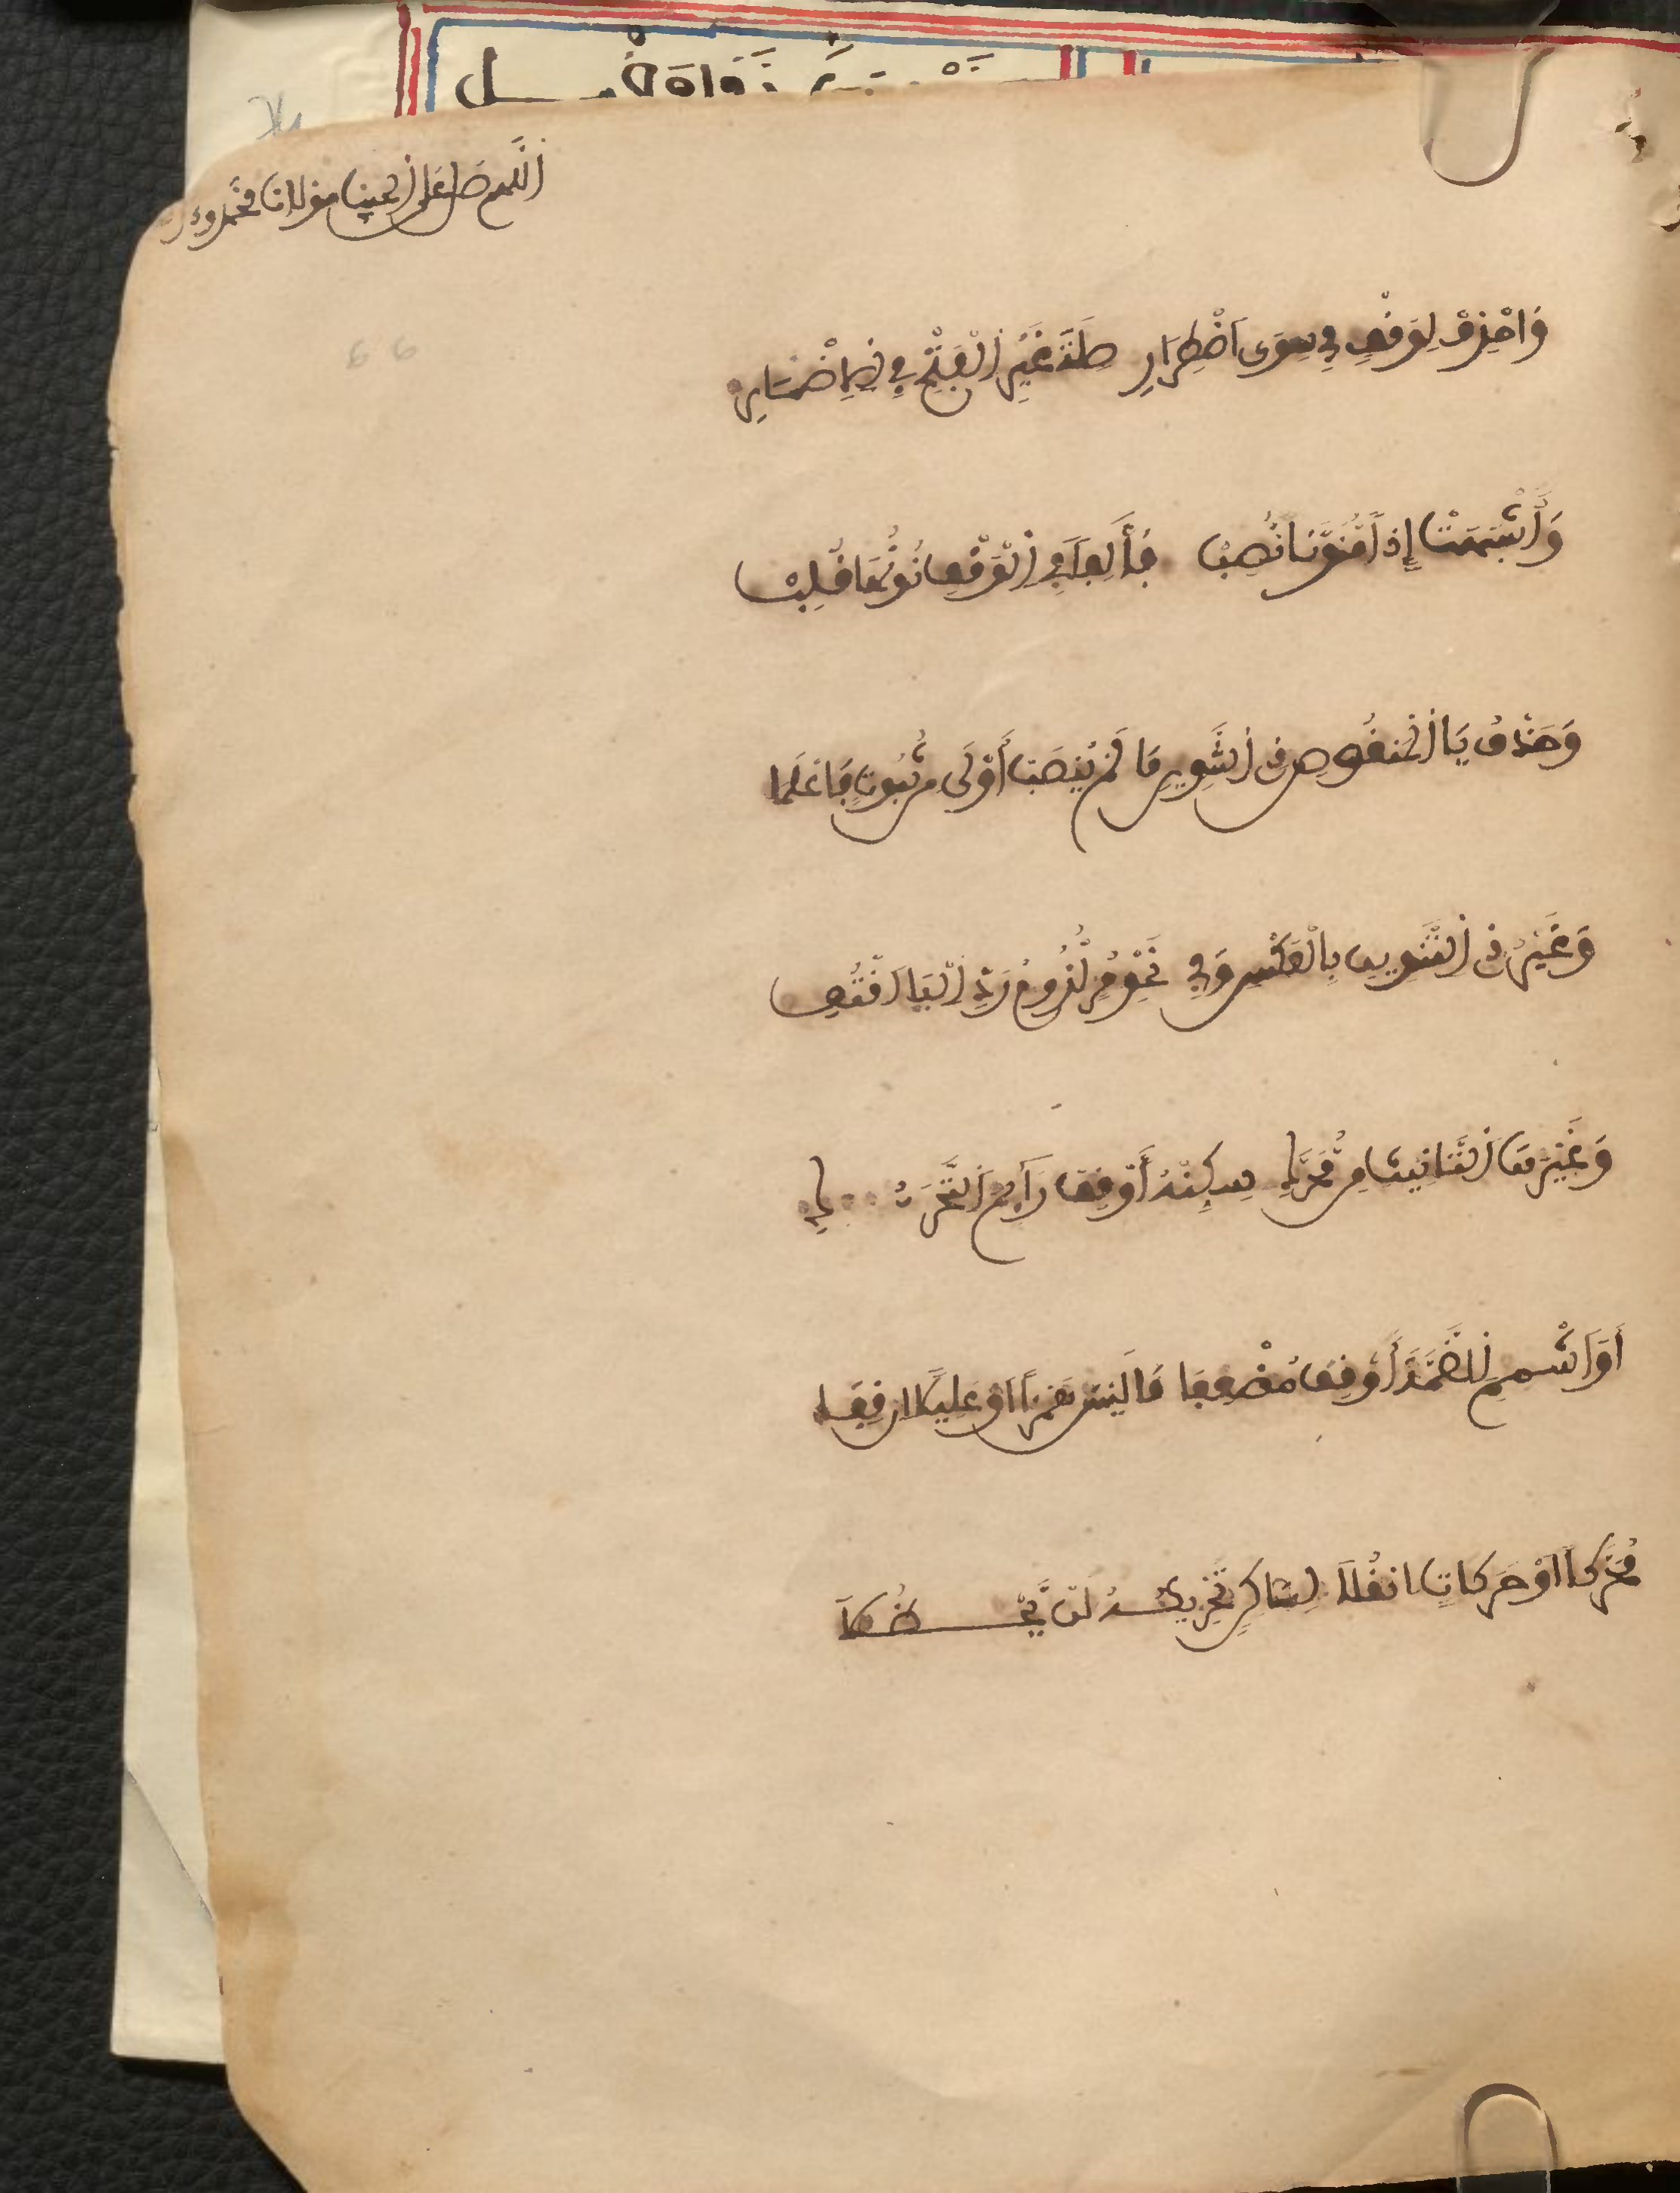 اللهم صل على الحبيب مولانا محمد وء
وَاحْذِفْ لِوَقْفٍ فِي سِوَى اضْطِرَارِ صِلَةَ غَيْرِ الْفَتْحِ فِي الِاضْمَارِ
وَأَشْبَهَتْ إِذًا مُنَوَّنًا نُصِبْ فَأَلِفًا فِي الْوَقْفِ نُونُهَا قُلِبْ
وَحَذْفُ يَا الْمَنْقُوصِ ذِي التَّنْوِينِ مَا لَمْ يُنْصَبَ أَوْلَى مِن ثُّبُوتٍ فَاعْلَمَا
وَغَيْرُ ذِي التَّنْوِينِ بِالْعَكْسِ وَفِي نَحْوِ مُرٍ لُّزُومُ رَدِّ الْيَا اقْتُفِي
وَغَيْرَهَا التَّانِيثِ مِن مُّحَرَّكِ سَكِّنْهُ أَوْ قِفْ رَآئِمَ التَّحَرُّكِ
أَوَ اشْمِمِ الضَّمَّةَ أَوْ قِفْ مُضْعِفَا مَا لَيْسَ هَمْزًا اَوْ عَلِيلًا ان قَفَا
مُحَرَّكًا اَوْ حَرَكَاتٍ انقُلَا لِسَاكِنٍ تَحْرِيكُهُ لَن يُّحْظَلَا